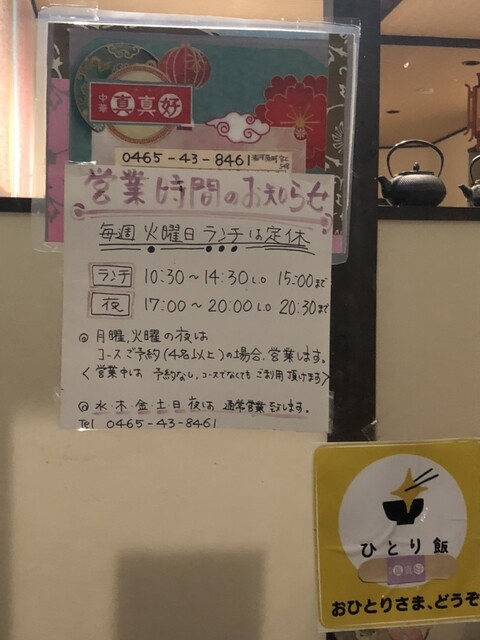 中華 真真好
0465-43-8461
営業時間のお知らせ
毎週 火曜日 ランチは定休
ランチ 10:30~14:30 L.O 15:00まで
夜 17:00~20:00 L.O 20:30まで
◎ 月曜、火曜の夜は
コースご予約(4名以上)の場合、営業します。
<営業中は 予約なし、コースでなくても ご利用頂けます>
◎ 水 木 金 土 日 夜は 通常営業致します。
Tel 0465-43-8461
ひとり飯
真真好
おひとりさま、どうぞ